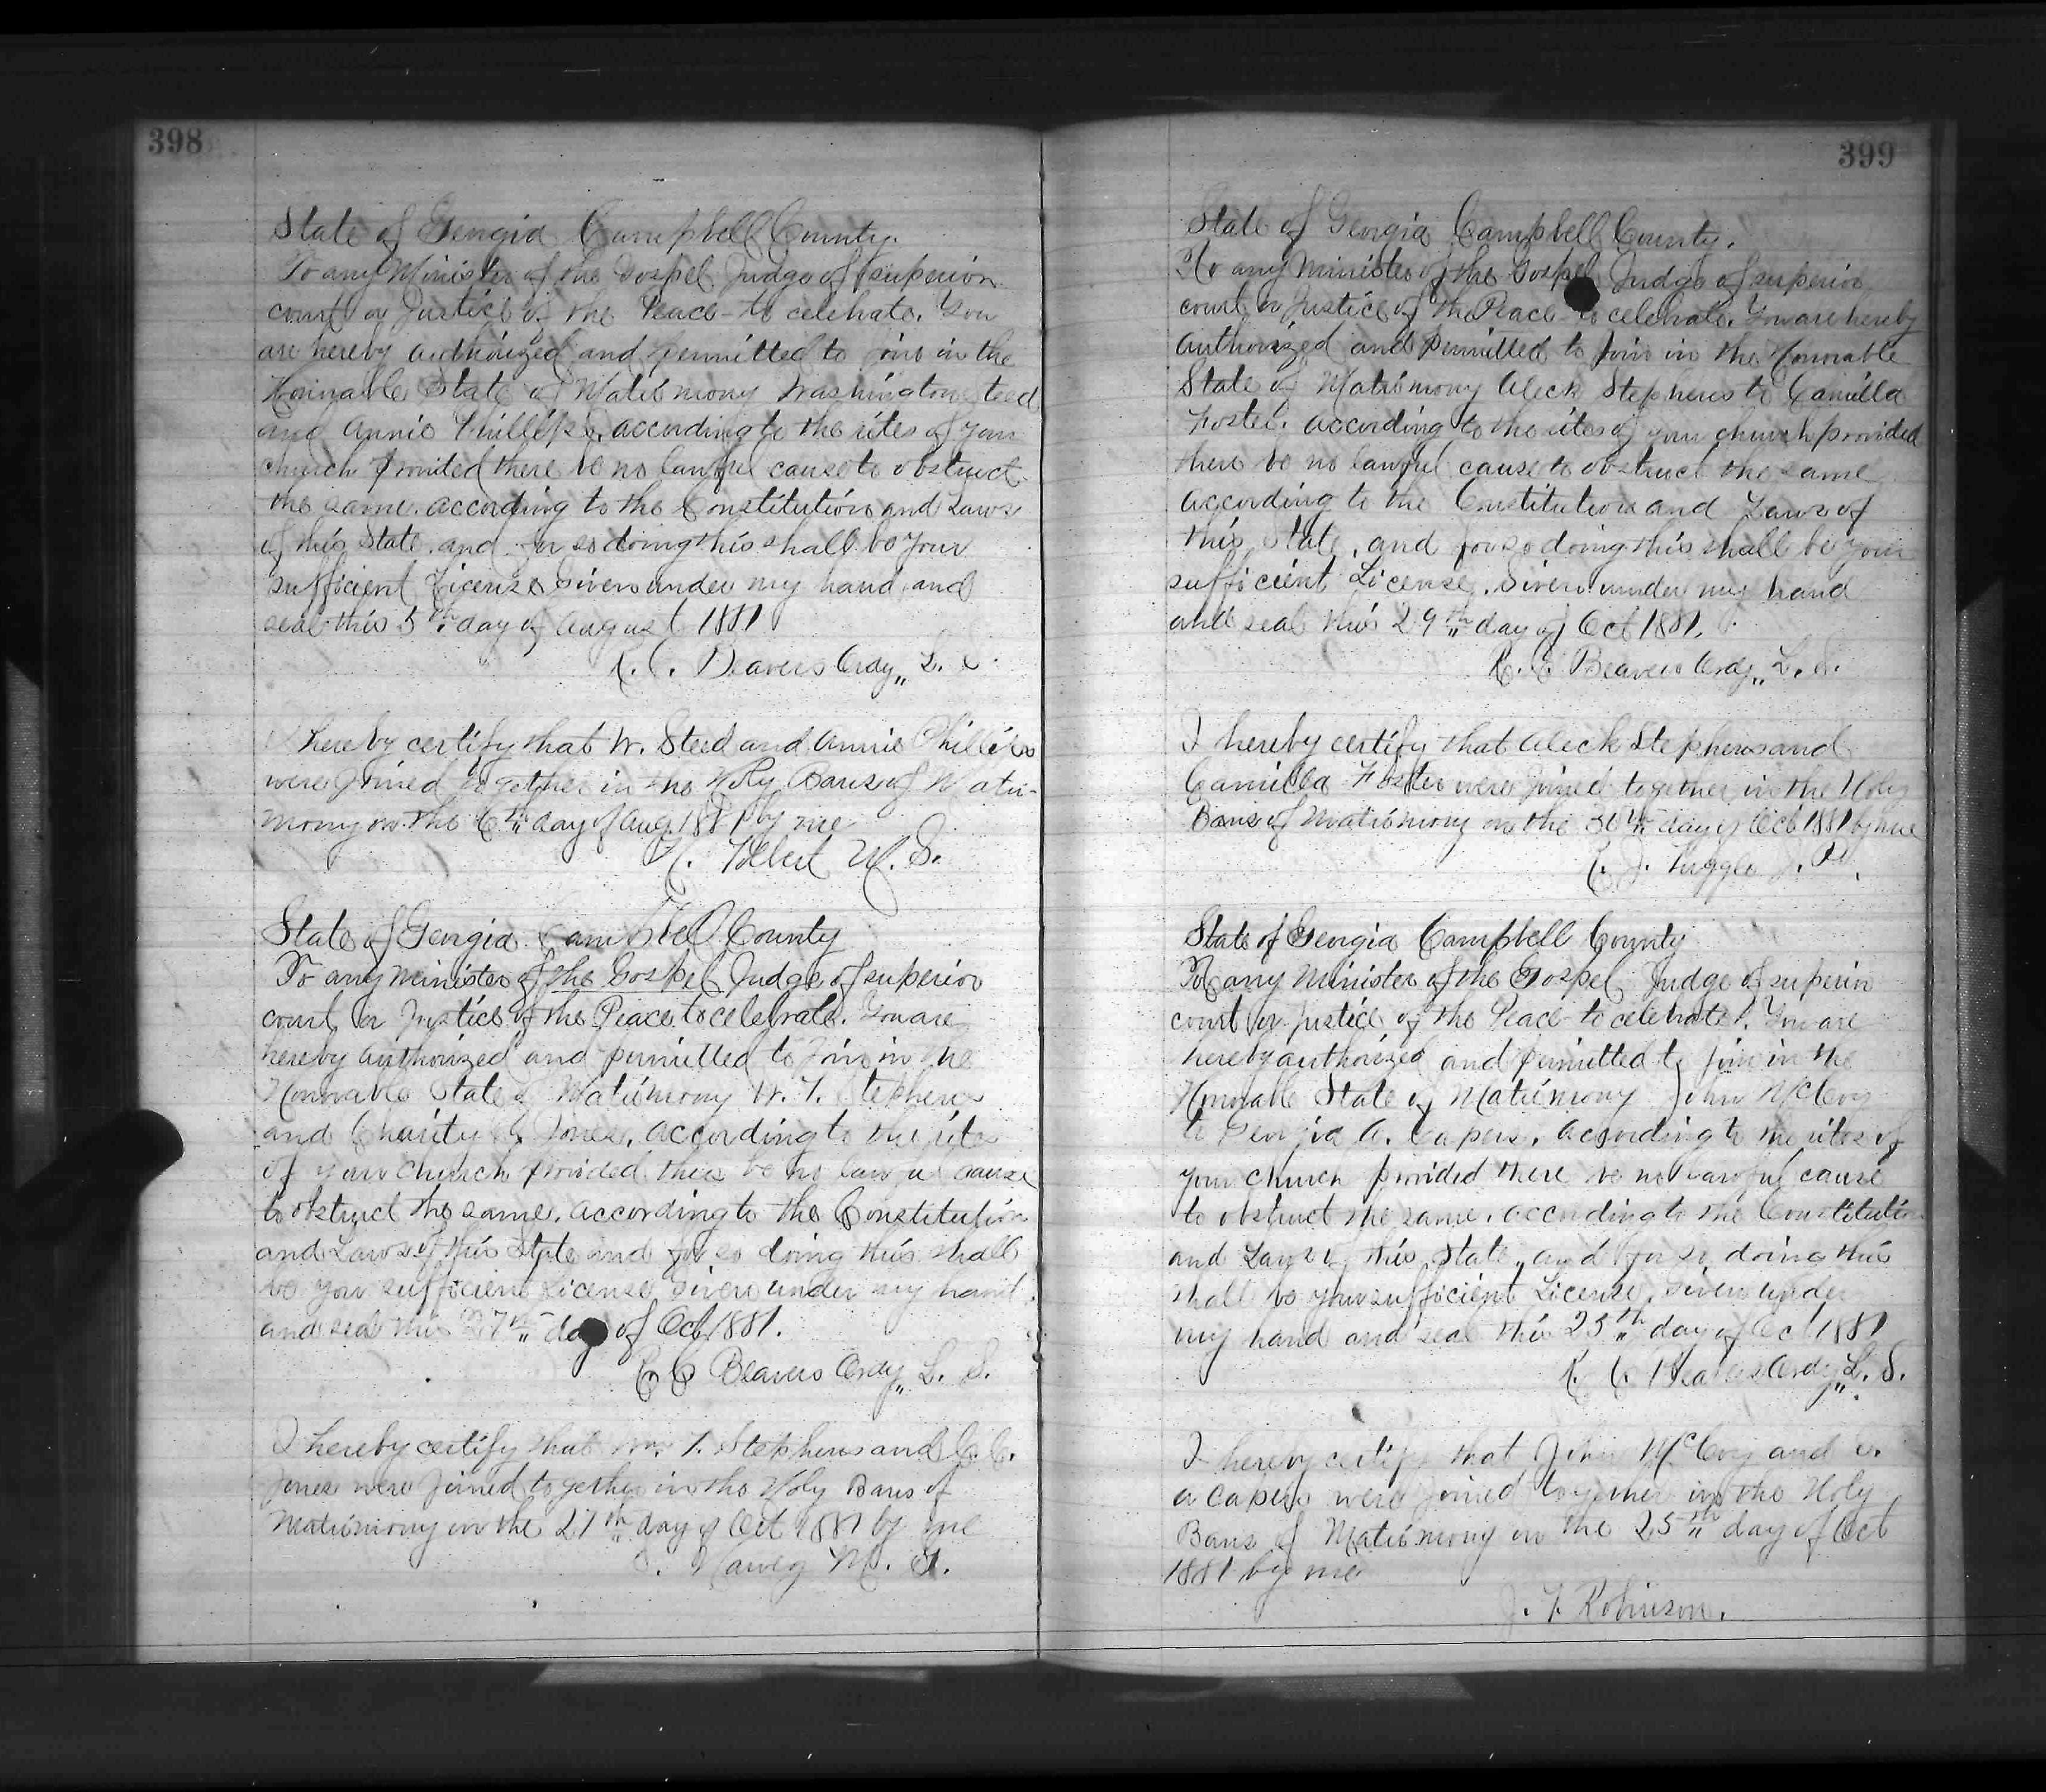 398
State of Georgia Campbell County.
To any Minister of the Gospel Judge of superior
court or Justice of the Peace to celebrate. You
are hereby authorized and permitted to join in the
Honorable State of Matrimony Washington Steed
and Annie Phillips, according to the rites of your
church provided there be no lawful cause to obstruct
the same. according to the Constitution and Laws
of this State. and for so doing this shall be your
sufficient License Given under my hand and
seal this 5th day of August 1881
R. C. Beavers Ordy,, L. S.
I hereby certify that W. Steed and Annie Phillips
were joined together in the Holy Bans of Matri-
mony on the 6th day of Aug. 1881 by me
M. G.
State of Georgia Campbell County
To any Minister of the Gospel Judge of superior
court or Justice of the Peace to celebrate. You are
hereby authorized and permitted to join in the
Honorable State of Matrimony W. T. Stephens
and Charity C. Jones, according to the rites
of your church provided there be no lawful cause
to obstruct the same. according to the Constitution
and Laws of this State and for so doing this shall
be your sufficient License, Given under my hand
and seal this 27th day of Oct 1881.
R C Beavers Ordy,, L. S.
I hereby certify that Wm. T. Stephens and C. C.
Jones were joined together in the Holy Bans of
Matrimony on the 27th day of Oct 1881 by me
M. G.
399
State of Georgia Campbell County.
To any Minister of the Gospel Judge of superior
court or Justice of the Peace to celebrate. You are hereby
authorized and permitted to join in the Honorable
State of Matrimony Aleck Stephens to Camilla
Foster. according to the rites of your church provided
there be no lawful cause to obstruct the same
according to the Constitution and Laws of
this State, and for so doing this shall be your
sufficient License. Given under my hand
and seal this 29th day of Oct 1881.
R. C. Beavers Ordy,, L. S.
I hereby certify that Aleck Stephens and
Camilla Foster were joined together in the Holy
Bans of Matrimony on the 30th day of Oct 1881 by me
J. Tuggle J. P.
State of Georgia Campbell County
To any Minister of the Gospel Judge of superior
court or Justice of the Peace to celebrate. You are
hereby authorized and permitted to join in the
Honorable State of Matrimony John McCoy
to Georgia A. Capers. According to the rites of
your church provided there be no lawful cause
to obstruct the same. according to the Constitution
and Laws of this State,, and for so doing this
shall be your sufficient License. Given under
my hand and seal this 25th day of Oct 1881
R. C. Beavers Ordy,, L. S.
I hereby certify that John McCoy and G.
A Capers were joined together in the Holy
Bans of Matrimony on the 25th day of Oct
1881 by me
J. T. Robinson.